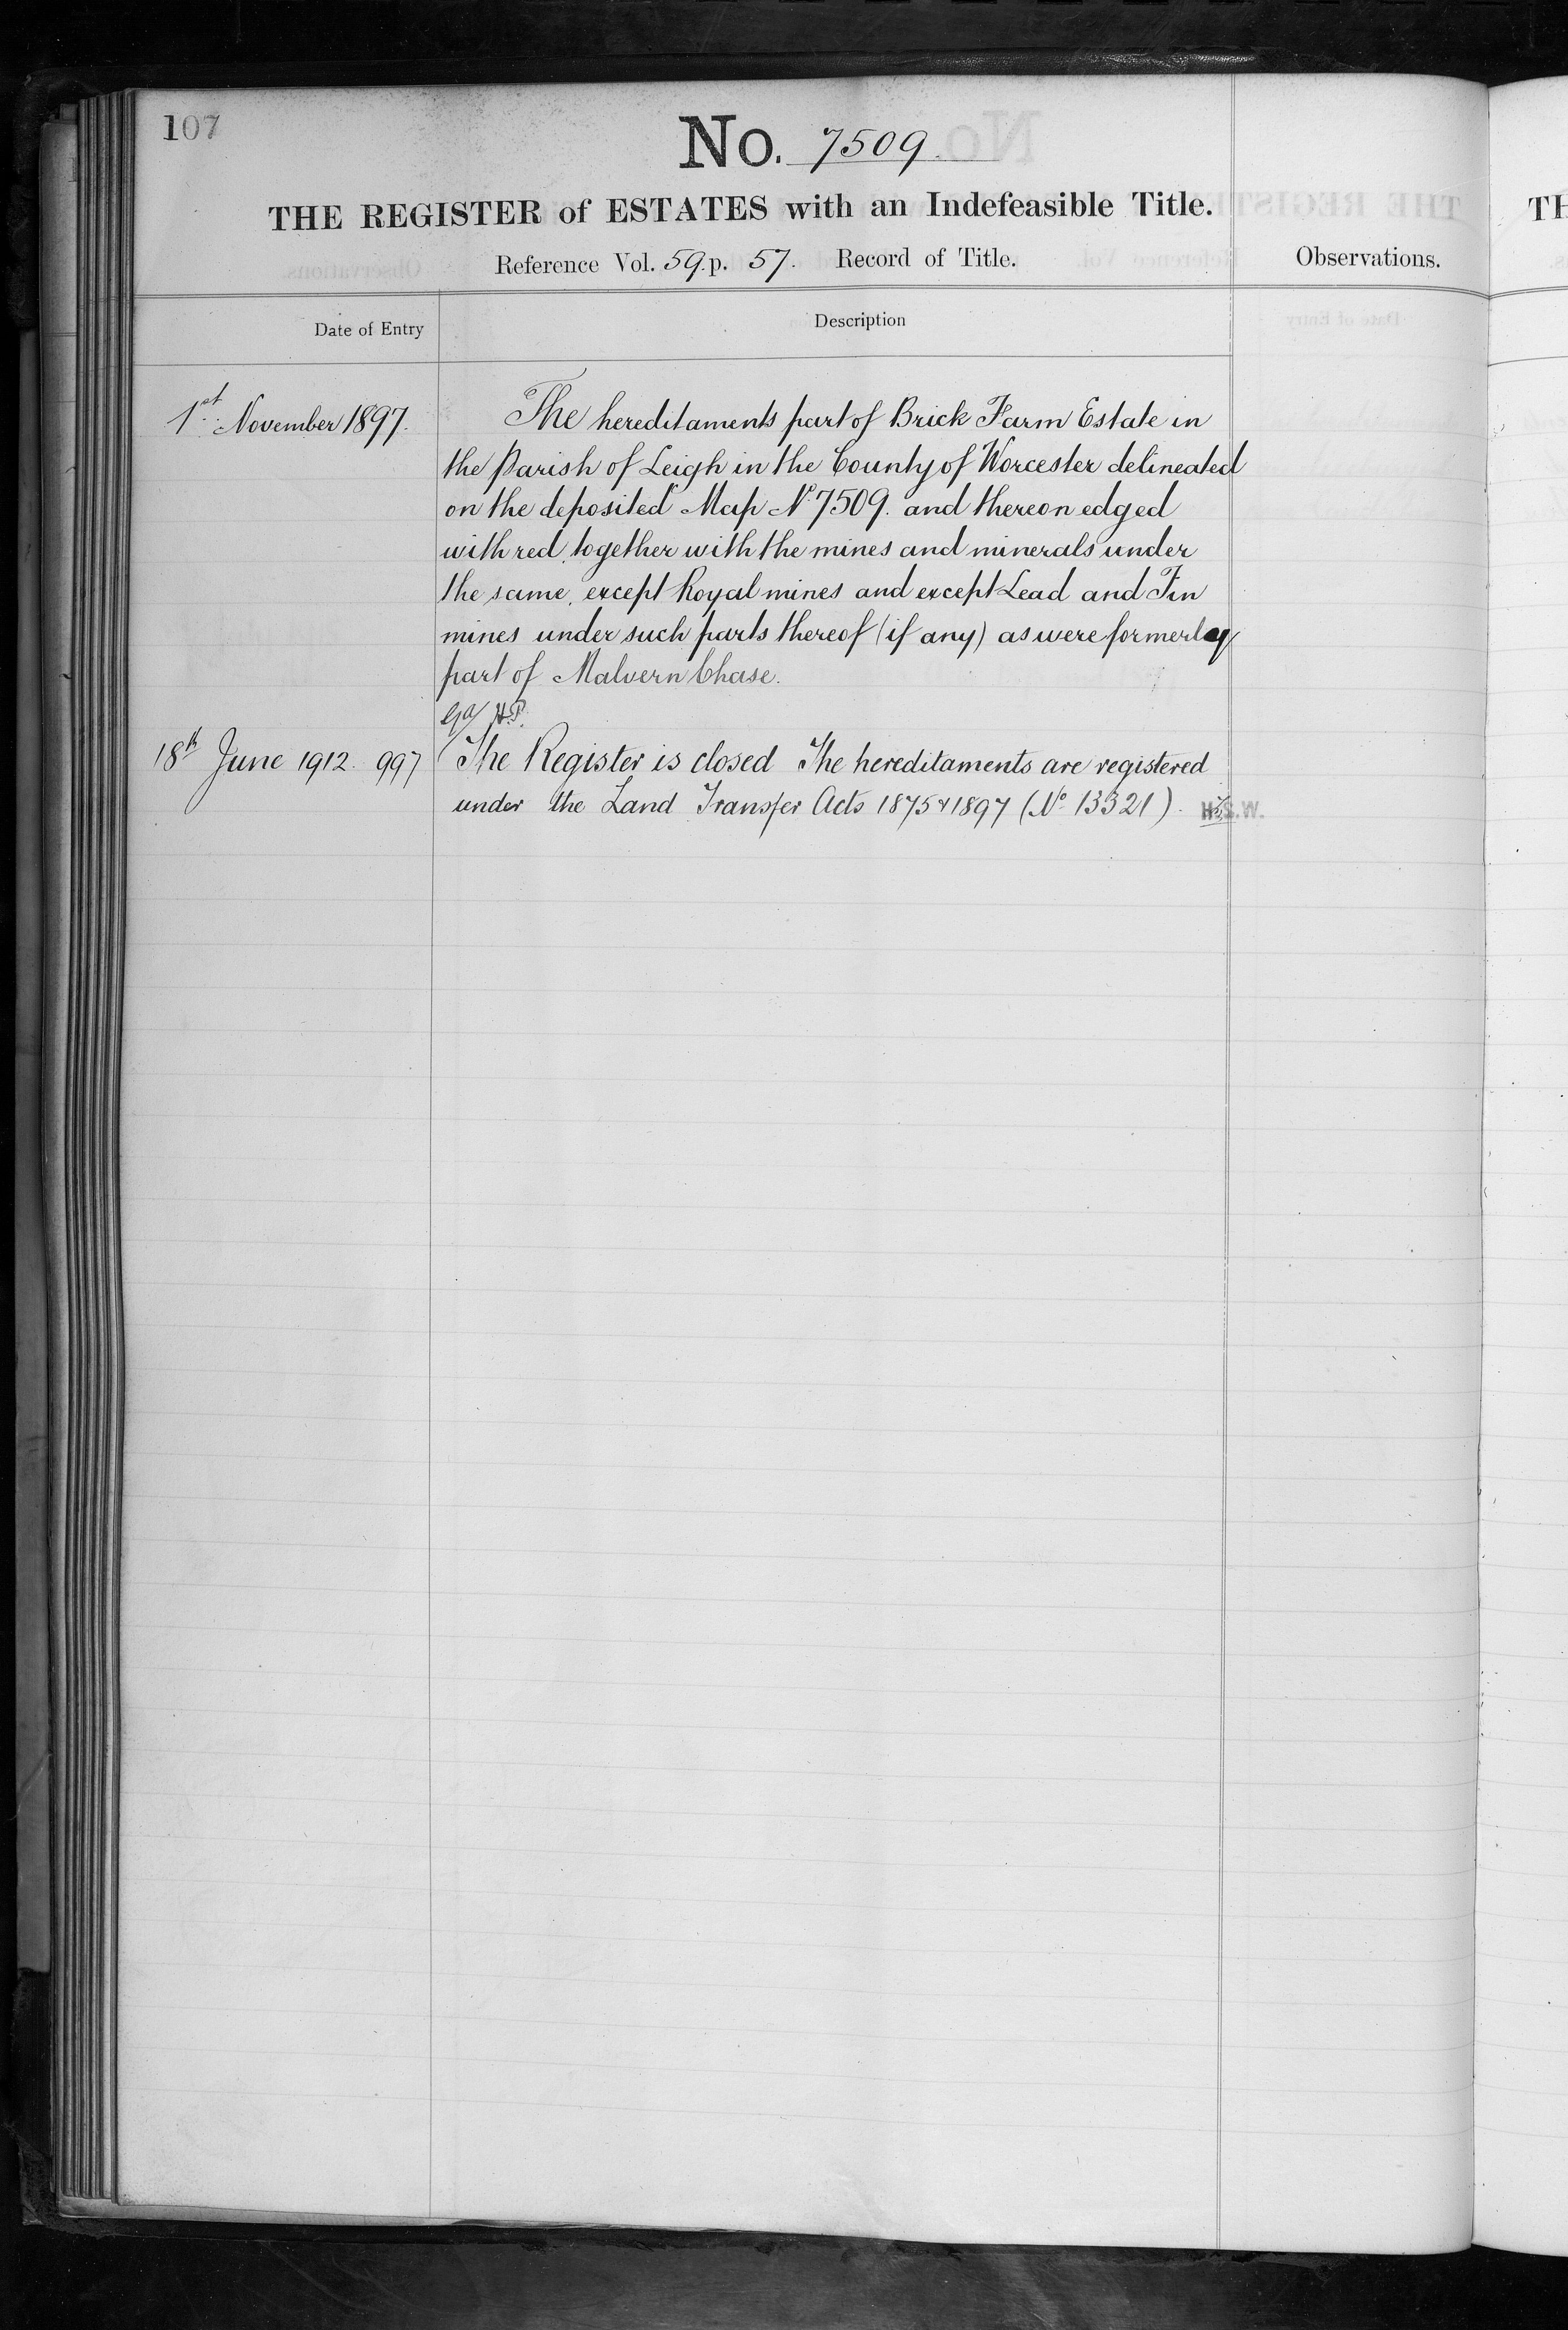 107
No. 7509.
THE REGISTER of ESTATES with an Indefeasible Title.
Reference Vol. 59. p. 57. Record of Title.
Observations.
Date of Entry
Description
1st November 1897.
The hereditaments part of Brick Farm Estate in
the Parish of Leigh in the County of Worcester delineated
on the deposited Map No. 7509. and thereon edged
with red, together with the mines and minerals under
the same, except Royal mines and except Lead and Tin
mines under such parts thereof (if any) as were formerly
part of Malvern Chase.
H.P.
18th June 1912. 997
The Register is closed The hereditaments are registered
under the Land Transfer Acts 1875 & 1897 (No 13321).
H.S.W.
TH